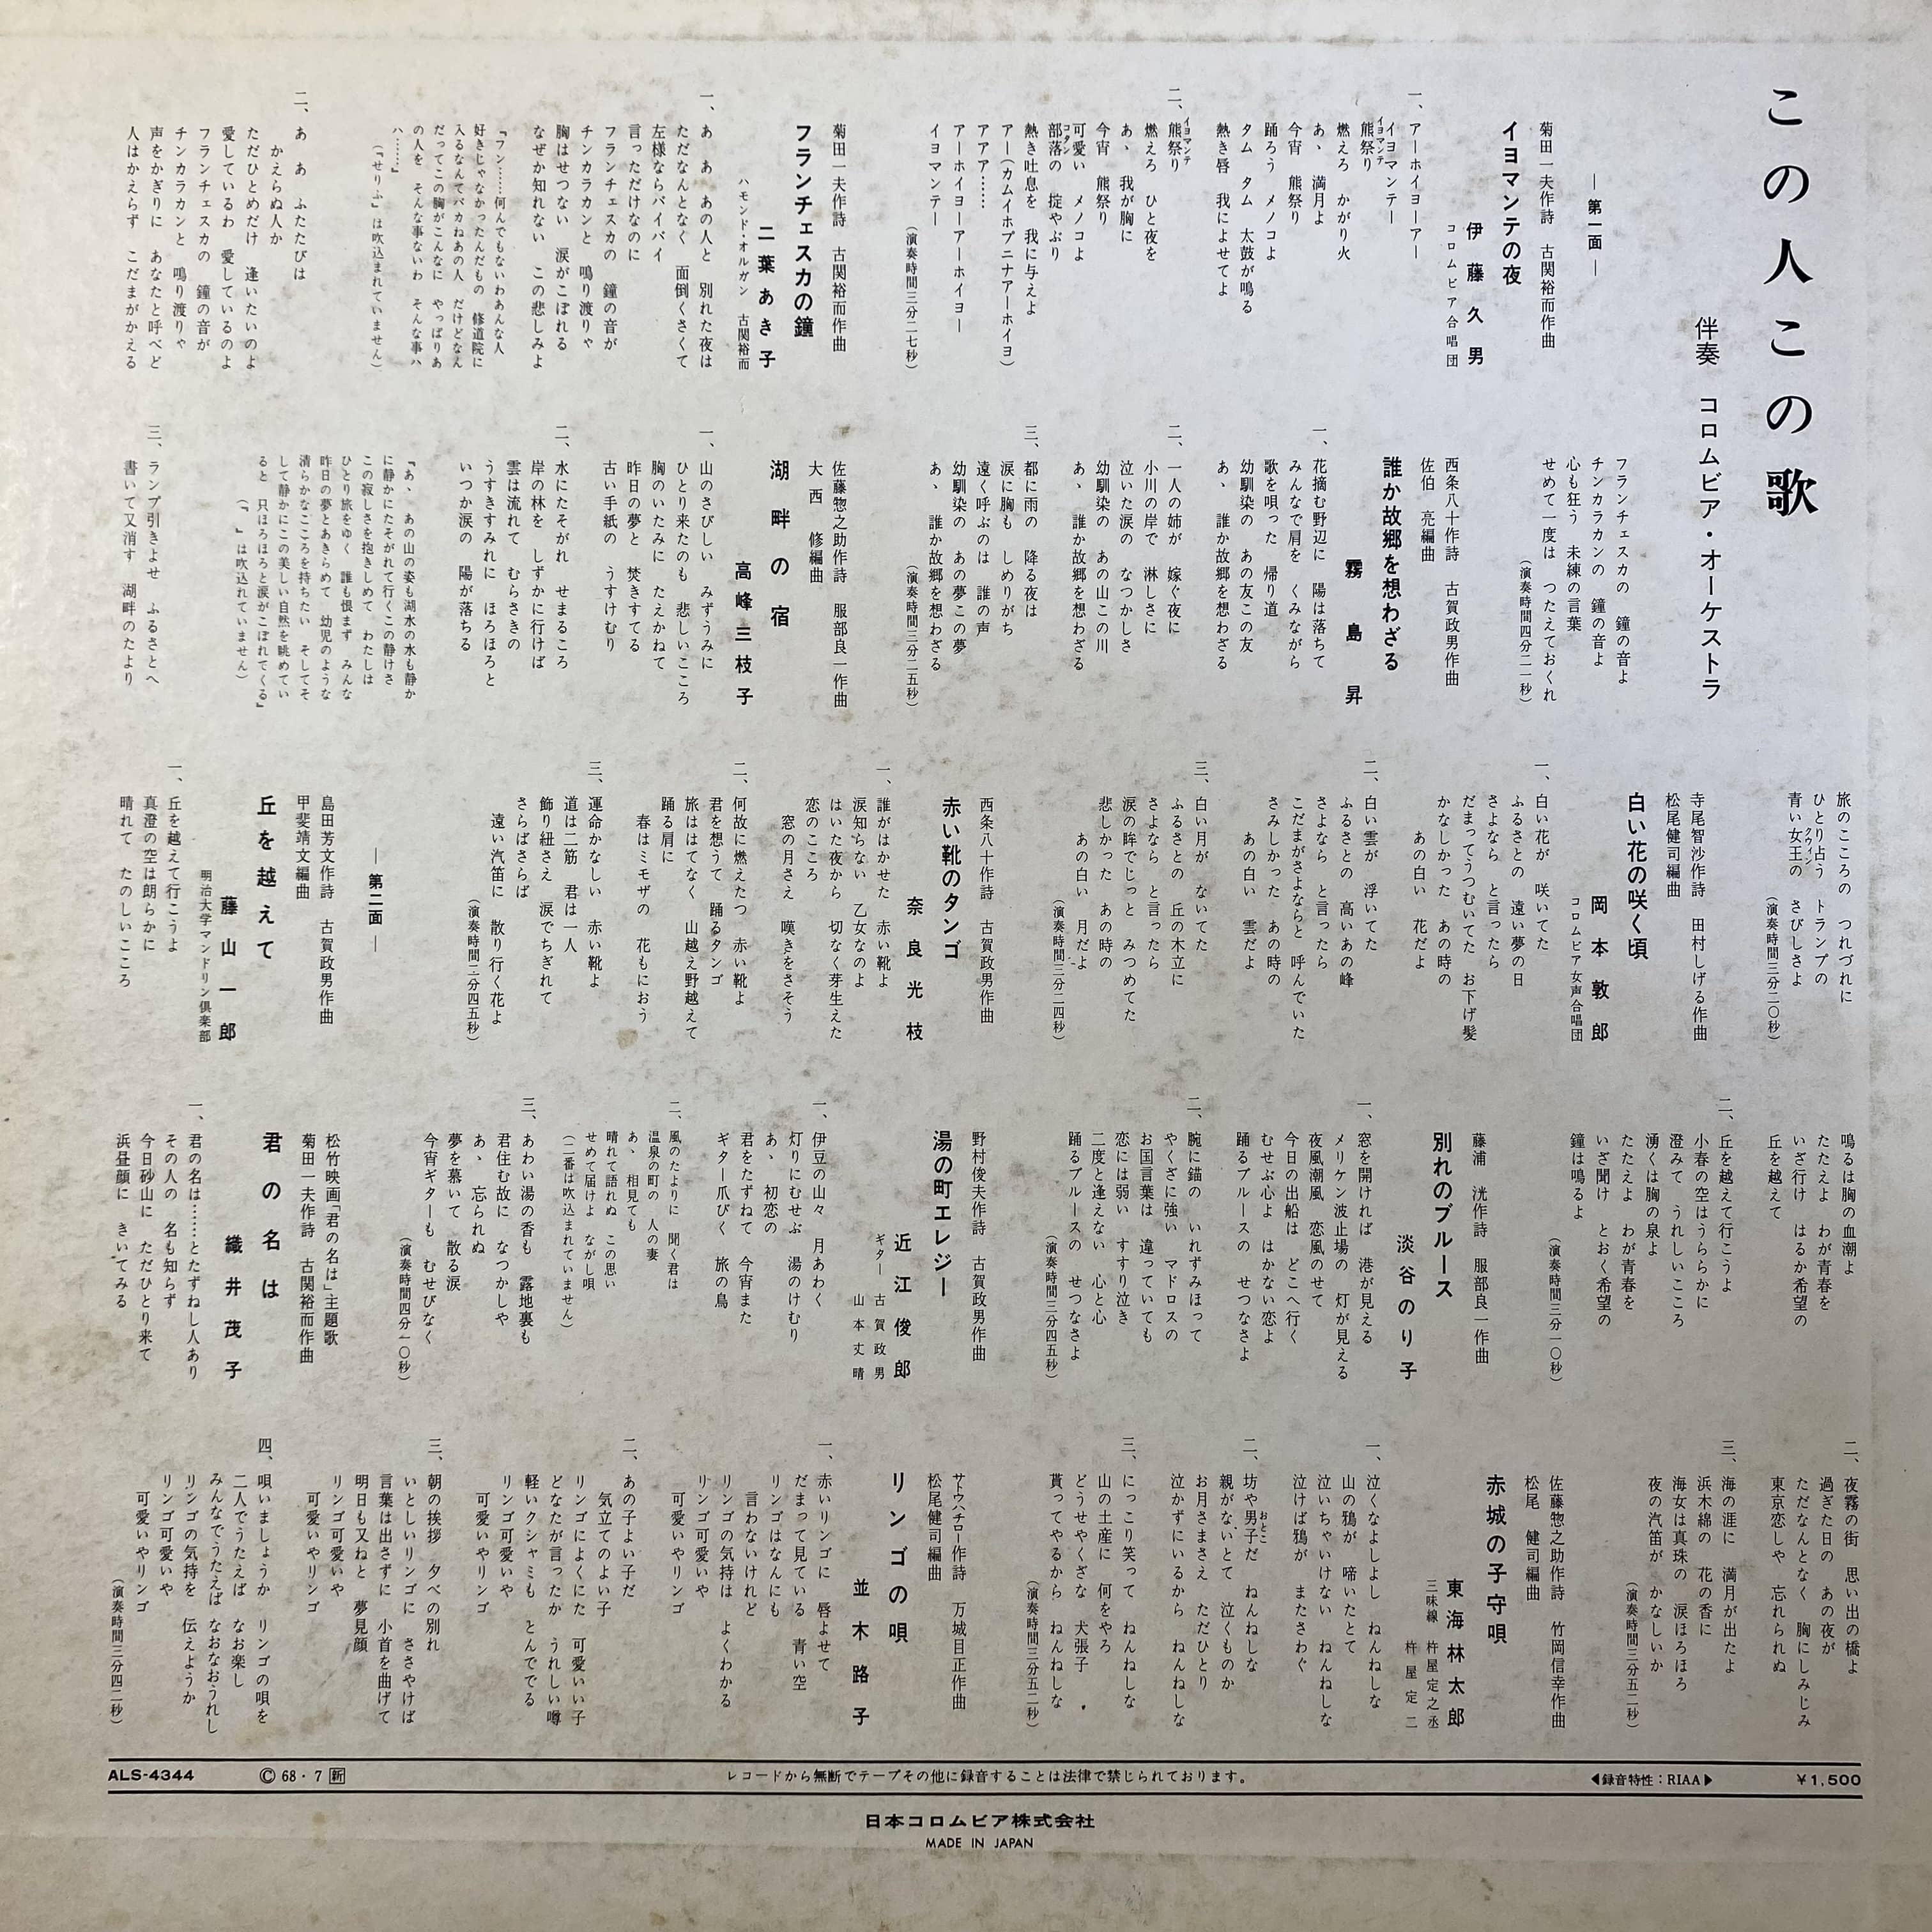 この人この歌
伴奏 コロムビア・オーケストラ
―第一面―
菊田一夫作詩 古関裕而作曲
イヨマンテの夜
伊藤久男
コロムビア合唱団
一、アーホイヨーアー
イヨマンテー
熊祭り
イヨマンテ
燃えろ かがり火
あゝ 満月よ
今宵 熊祭り
踊ろう メノコよ
タム タム 太鼓が鳴る
熱き唇 我によせてよ
二、熊祭り
イヨマンテ
燃えろ ひと夜を
あゝ 我が胸に
今宵 熊祭り
可愛い メノコよ
部落の 掟やぶり
コタン
熱き吐息を 我に与えよ
アー(カムイホプニナアーホイヨ)
アアア……
アーホイヨーアーホイヨー
イヨマンテー
(演奏時間三分二七秒)
菊田一夫作詩 古関裕而作曲
フランチェスカの鐘
二葉あき子
ハモンド・オルガン 古関裕而
一、あゝ あの人と 別れた夜は
ただなんとなく 面倒くさくて
左様ならバイバイ
言っただけなのに
フランチェスカの 鐘の音が
チンカラカンと 鳴り渡りゃ
胸はせつない 涙がこぼれる
なぜか知れない この悲しみよ
『フン……何んでもないわあんな人
好きじゃなかったんだもの 修道院に
入るなんてバカねあの人 だけどなん
だってこの胸がこんなに やっぱりあ
の人を そんな事ないわ そんな事ハ
ハ……』
(『せりふ』は吹込まれていません)
二、あゝ ふたたびは
かえらぬ人か
ただひとめだけ 逢いたいのよ
愛しているわ 愛しているのよ
フランチェスカの 鐘の音が
チンカラカンと 鳴り渡りゃ
声をかぎりに あなたと呼べど
人はかえらず こだまがかえる
フランチェスカの 鐘の音よ
チンカラカンの 鐘の音よ
心も狂う 未練の言葉
せめて一度は つたえておくれ
(演奏時間四分二一秒)
西条八十作詩 古賀政男作曲
佐伯 亮編曲
誰か故郷を想わざる
霧島昇
一、花摘む野辺に 陽は落ちて
みんなで肩を くみながら
歌を唄った 帰り道
幼馴染の あの友この友
あゝ 誰か故郷を想わざる
二、一人の姉が 嫁ぐ夜に
小川の岸で 淋しさに
泣いた涙の なつかしさ
幼馴染の あの山この川
あゝ 誰か故郷を想わざる
三、都に雨の 降る夜は
涙に胸も しめりがち
遠く呼ぶのは 誰の声
幼馴染の あの夢この夢
あゝ 誰か故郷を想わざる
(演奏時間三分二五秒)
佐藤惣之助作詩 服部良一作曲
大西 修編曲
湖畔の宿
高峰三枝子
一、山のさびしい みずうみに
ひとり来たのも 悲しいこころ
胸のいたみに たえかねて
昨日の夢と 焚きすてる
古い手紙の うすけむり
二、水にたそがれ せまるころ
岸の林を しずかに行けば
雲は流れて むらさきの
うすきすみれに ほろほろと
いつか涙の 陽が落ちる
『あゝ あの山の姿も湖水の水も静か
に静かにたそがれて行くこの静けさ
この寂しさを抱きしめて わたしは
ひとり旅をゆく 誰も恨まず みんな
昨日の夢とあきらめて 幼児のような
清らかなこころを持ちたい そしてそ
して静かにこの美しい自然を眺めてい
ると 只ほろほろと涙がこぼれてくる』
(『 』は吹込れていません)
三、ランプ引きよせ ふるさとへ
書いて又消す 湖畔のたより
旅のこころの つれづれに
ひとり占う トランプの
青い女王の さびしさよ
クウィン
(演奏時間三分二〇秒)
寺尾智沙作詩 田村しげる作曲
松尾健司編曲
白い花の咲く頃
岡本敦郎
コロムビア女声合唱団
一、白い花が 咲いてた
ふるさとの 遠い夢の日
さよなら と言ったら
だまってうつむいてた お下げ髪
かなしかった あの時の
あの白い 花だよ
二、白い雲が 浮いてた
ふるさとの 高いあの峰
さよなら と言ったら
こだまがさよならと 呼んでいた
さみしかった あの時の
あの白い 雲だよ
三、白い月が ないてた
ふるさとの 丘の木立に
さよなら と言ったら
涙の眸でじっと みつめてた
悲しかった あの時の
あの白い 月だよ
(演奏時間三分二四秒)
西条八十作詩 古賀政男作曲
赤い靴のタンゴ
奈良光枝
一、誰がはかせた 赤い靴よ
涙知らない 乙女なのよ
はいた夜から 切なく芽生えた
恋のこころ
窓の月さえ 嘆きをさそう
二、何故に燃えたつ 赤い靴よ
君を想うて 踊るタンゴ
旅ははてなく 山越え野越えて
踊る肩に
春はミモザの 花もにおう
三、運命かなしい 赤い靴よ
道は二筋 君は一人
飾り紐さえ 涙でちぎれて
さらばさらば
遠い汽笛に 散り行く花よ
(演奏時間二分四五秒)
―第二面―
島田芳文作詩 古賀政男作曲
甲斐靖文編曲
丘を越えて
藤山一郎
明治大学マンドリン倶楽部
一、丘を越えて行こうよ
真澄の空は朗らかに
晴れて たのしいこころ
鳴るは胸の血潮よ
たたえよ わが青春を
いざ行け はるか希望の
丘を越えて
二、丘を越えて行こうよ
小春の空はうららかに
澄みて うれしいこころ
湧くは胸の泉よ
たたえよ わが青春を
いざ聞け とおく希望の
鐘は鳴るよ
(演奏時間三分一〇秒)
藤浦 洸作詩 服部良一作曲
別れのブルース
淡谷のり子
一、窓を開ければ 港が見える
メリケン波止場の 灯が見える
夜風潮風 恋風のせて
今日の出船は どこへ行く
むせぶ心よ はかない恋よ
踊るブルースの せつなさよ
二、腕に錨の いれずみほって
やくざに強い マドロスの
お国言葉は 違っていても
恋には弱い すすり泣き
二度と逢えない 心と心
踊るブルースの せつなさよ
(演奏時間三分四五秒)
野村俊夫作詩 古賀政男作曲
湯の町エレジー
近江俊郎
ギター 古賀政男
山本丈晴
一、伊豆の山々 月あわく
灯りにむせぶ 湯のけむり
あゝ 初恋の
君をたずねて 今宵また
ギター爪びく 旅の鳥
二、風のたよりに 聞く君は
温泉の町の 人の妻
あゝ 相見ても
晴れて語れぬ この思い
せめて届けよ ながし唄
(二番は吹込まれていません)
三、あわい湯の香も 露地裏も
君住む故に なつかしや
あゝ 忘られぬ
夢を慕いて 散る涙
今宵ギターも むせびなく
(演奏時間四分一〇秒)
松竹映画「君の名は」主題歌
菊田一夫作詩 古関裕而作曲
君の名は
織井茂子
一、君の名は……とたずねし人あり
その人の 名も知らず
今日砂山に ただひとり来て
浜昼顔に きいてみる
二、夜霧の街 思い出の橋よ
過ぎた日の あの夜が
ただなんとなく 胸にしみじみ
東京恋しや 忘れられぬ
三、海の涯に 満月が出たよ
浜木綿の 花の香に
海女は真珠の 涙ほろほろ
夜の汽笛が かなしいか
(演奏時間三分五二秒)
佐藤惣之助作詩 竹岡信幸作曲
松尾 健司編曲
赤城の子守唄
東海林太郎
三味線 杵屋定之丞
杵屋定二
一、泣くなよしよし ねんねしな
山の鴉が 啼いたとて
泣いちゃいけない ねんねしな
泣けば鴉が またさわぐ
二、坊や男子だ ねんねしな
おとこ
親がないとて 泣くものか
お月さまさえ ただひとり
泣かずにいるから ねんねしな
三、にっこり笑って ねんねしな
山の土産に 何をやろ
どうせやくざな 犬張子
貰ってやるから ねんねしな
(演奏時間三分五二秒)
サトウハチロー作詩 万城目正作曲
松尾健司編曲
リンゴの唄
並木路子
一、赤いリンゴに 唇よせて
だまって見ている 青い空
リンゴはなんにも
言わないけれど
リンゴの気持は よくわかる
リンゴ可愛いや
可愛いやリンゴ
二、あの子よい子だ
気立てのよい子
リンゴによくにた 可愛いい子
どなたが言ったか うれしい噂
軽いクシャミも とんででる
リンゴ可愛いや
可愛いやリンゴ
三、朝の挨拶 夕べの別れ
いとしいリンゴに ささやけば
言葉は出さずに 小首を曲げて
明日も又ねと 夢見顔
リンゴ可愛いや
可愛いやリンゴ
四、唄いましょうか リンゴの唄を
二人でうたえば なお楽し
みんなでうたえば なおなおうれし
リンゴの気持を 伝えようか
リンゴ可愛いや
可愛いやリンゴ
(演奏時間三分四二秒)
ALS-4344 Ⓒ 68・7 新 レコードから無断でテープその他に録音することは法律で禁じられております。 ◀録音特性：RIAA▶ ¥1,500
日本コロムビア株式会社
MADE IN JAPAN